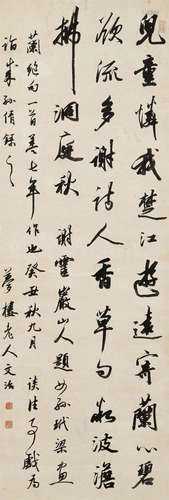 兒童憐我楚江遊遠寄蘭心碧
欲流多謝詩人香草句 波澹
拂洞庭秋 謝靈巖山人題女孫玳梁畫
蘭絕句一首蓋七年 作也癸丑秋九月 談往 戲為
詣 孫倩錄之
夢樓老人文治